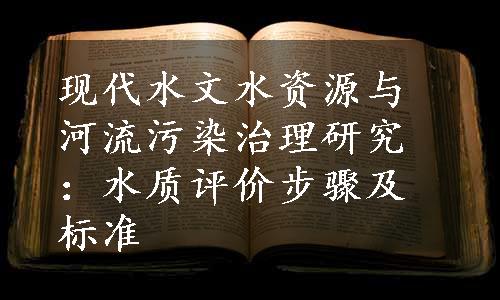 现代水文水资源与
河流污染治理研究
：水质评价步骤及
标准